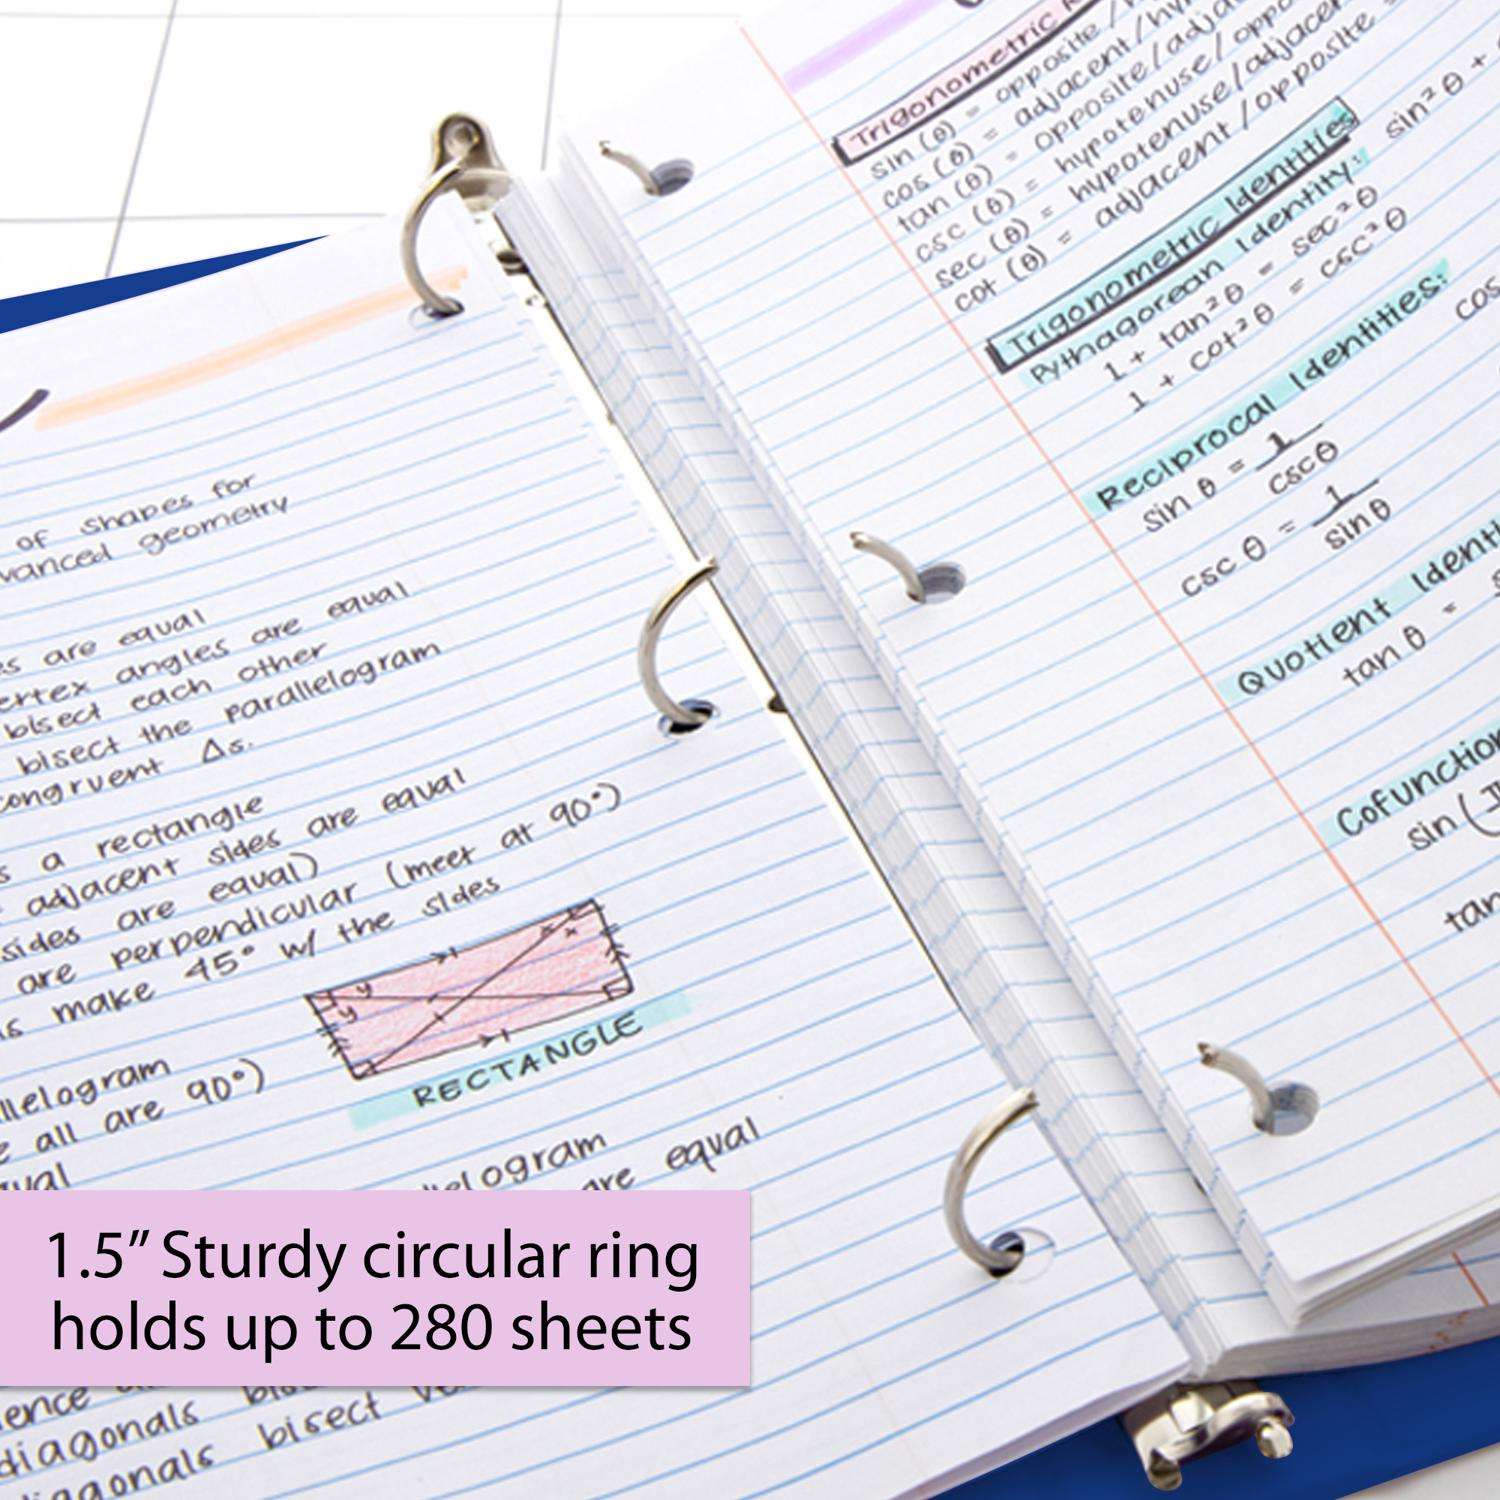 of shapes for
vanced geometry
es are equal
ertex angles are equal
bisect each other
bisect the parallelogram
congruent Δs.
s a rectangle
adjacent sides are equal
sides are equal)
are perpendicular (meet at 90°)
s make 45° w/ the sides
RECTANGLE
llelogram
e all are 90°)
ual
llelogram
are equal
1.5” Sturdy circular ring
holds up to 280 sheets
ence
diagonals
diagonals bisect
Trigonometric
sin (θ) = opposite /
cos (θ) = adjacent / hy
tan (θ) = opposite / adja
csc (θ) = hypotenuse / oppo
sec (θ) = hypotenuse / adjacen
cot (θ) = adjacent / opposite
Trigonometric Identities
Pythagorean Identity: sin²θ +
1 + tan²θ = sec²θ
1 + cot²θ = csc²θ
Reciprocal Identities:
sin θ = 1/cscθ cos
csc θ = 1/sinθ
Quotient Identi
tan θ =
Cofunction
sin (
tan